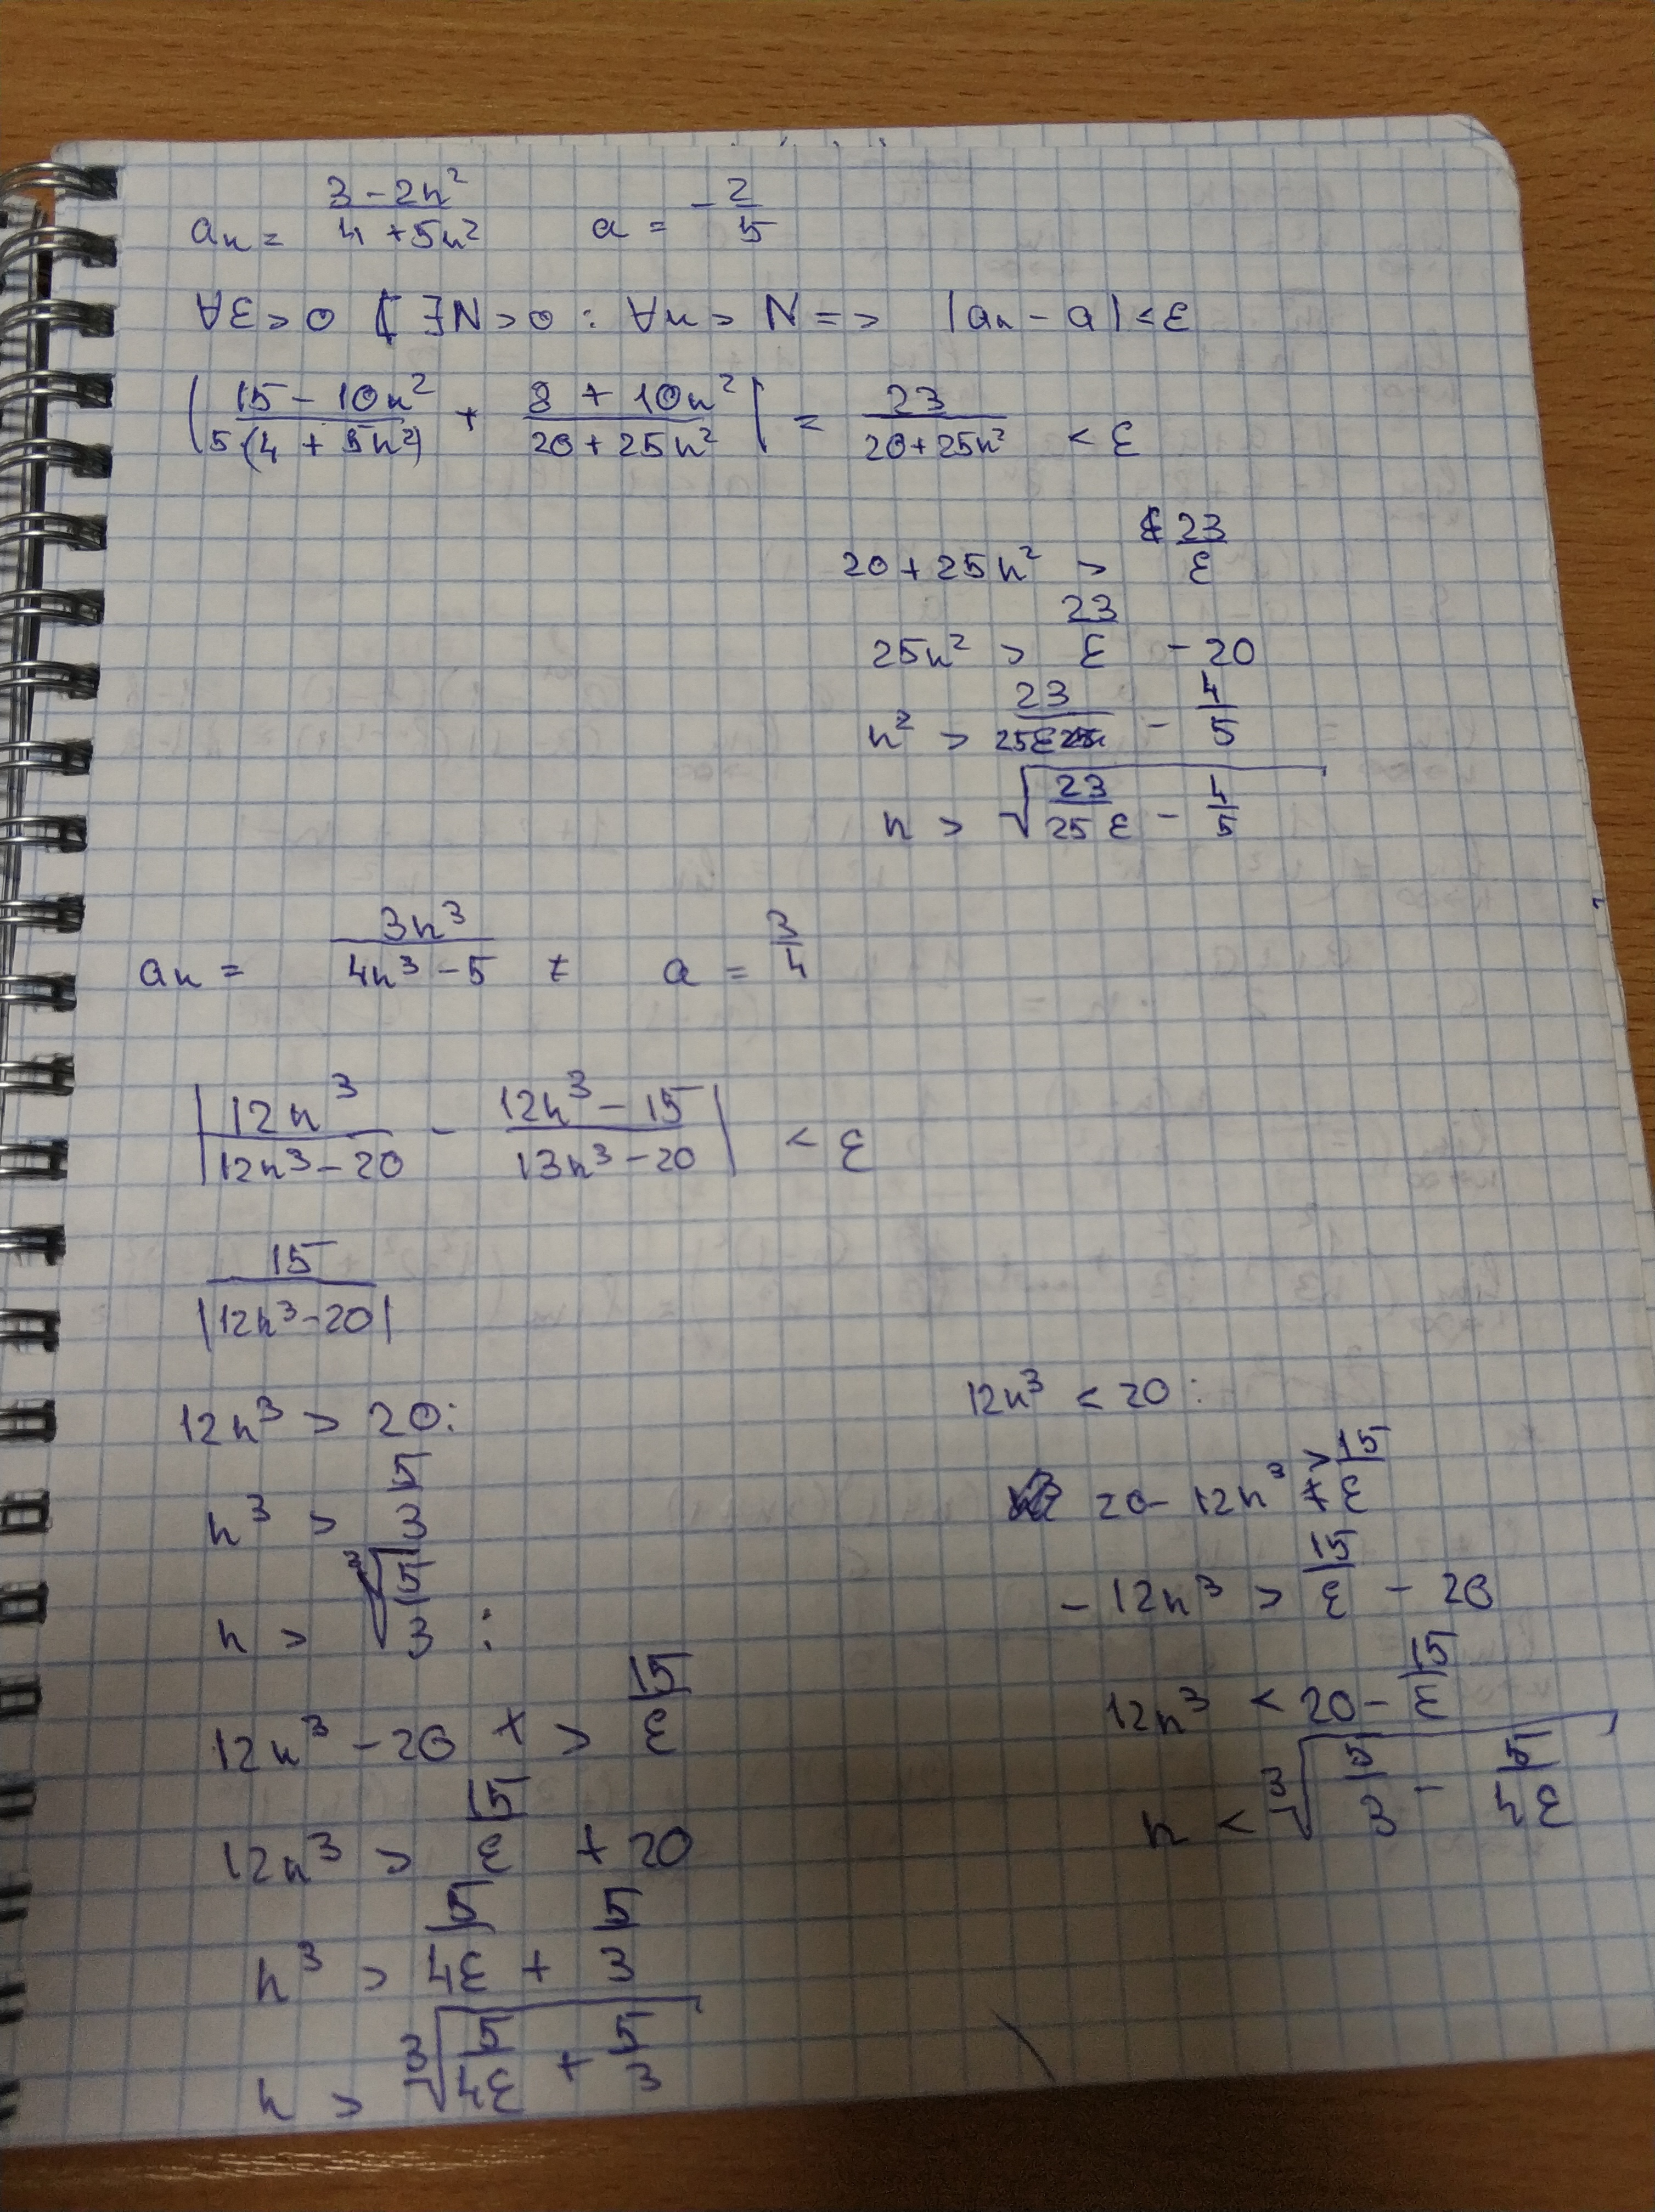 aₙ = (3 - 2n²)/(4 + 5n²)   a = -2/5
∀ε > 0 ∃N > 0 : ∀n > N => |aₙ - a| < ε
|(15 - 10n²)/(5(4 + 5n²)) + (8 + 10n²)/(20 + 25n²)| = 23/(20 + 25n²) < ε
20 + 25n² > 23/ε
25n² > 23/ε - 20
n² > 23/(25ε) - 4/5
n > √(23/(25ε) - 4/5)
aₙ = 3n³/(4n³ - 5)   a = 3/4
|12n³/(12n³ - 20) - (12n³ - 15)/(13n³ - 20)| < ε
15/|12n³ - 20|
12n³ > 20:
n³ > 5/3
n > ∛(5/3) :
12n³ - 20 > 15/ε
12n³ > 15/ε + 20
n³ > 5/(4ε) + 5/3
n > ∛(5/(4ε) + 5/3)
12n³ < 20:
20 - 12n³ > 15/ε
- 12n³ > 15/ε - 20
12n³ < 20 - 15/ε
n < ∛(5/3 - 5/(4ε))